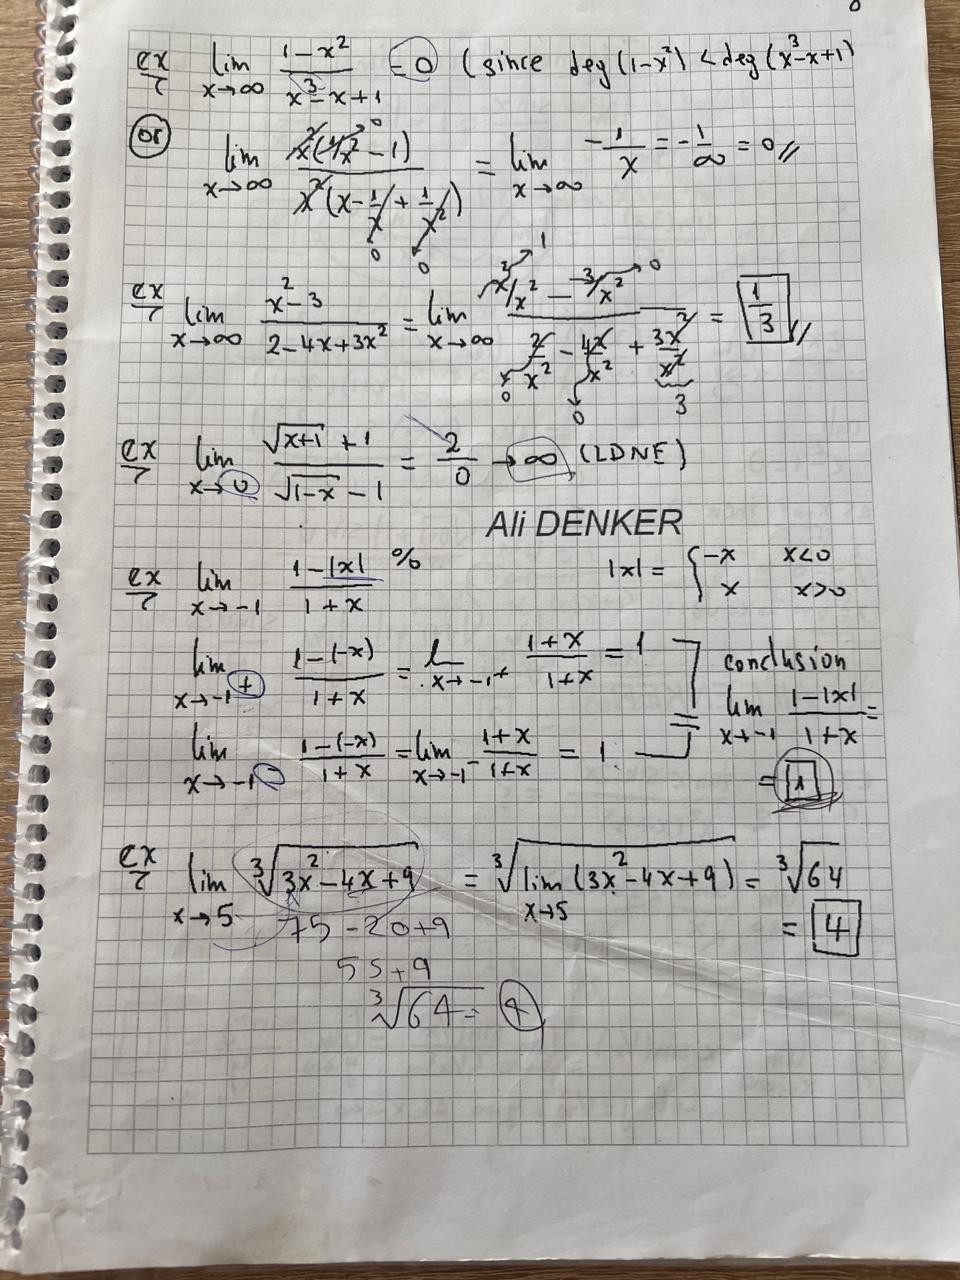 ex/ lim x→∞ (1-x²)/(x³-x+1) = 0 (since deg(1-x²) < deg(x³-x+1)
or lim x→∞ x²(1/x²-1)/x²(x-1/x+1/x²) = lim x→∞ -1/x = -1/∞ = 0//
0 0 0
ex/ lim x→∞ (x²-3)/(2-4x+3x²) = lim x→∞ (x²/x² - 3/x²)/(2/x² - 4x/x² + 3x²/x²) = 1/3 //
1 0 0 0 3
ex/ lim x→0 (√(x+1) + 1)/(√(1-x) - 1) = 2/0 → ∞ (LDNE)
Ali DENKER
ex/ lim x→-1 (1-|x|)/(1+x) 0/0 |x| = { -x x<0
x x>0
lim x→-1+ (1-(-x))/(1+x) = lim x→-1+ (1+x)/(1+x) = 1
conclusion
lim x→-1- (1-(-x))/(1+x) = lim x→-1- (1+x)/(1+x) = 1
lim x→-1 (1-|x|)/(1+x) =
= 1
ex/ lim x→5 ³√(3x²-4x+9) = ³√(lim x→5 (3x²-4x+9)) = ³√64
= 4
75-20+9
55+9
³√64 = 4